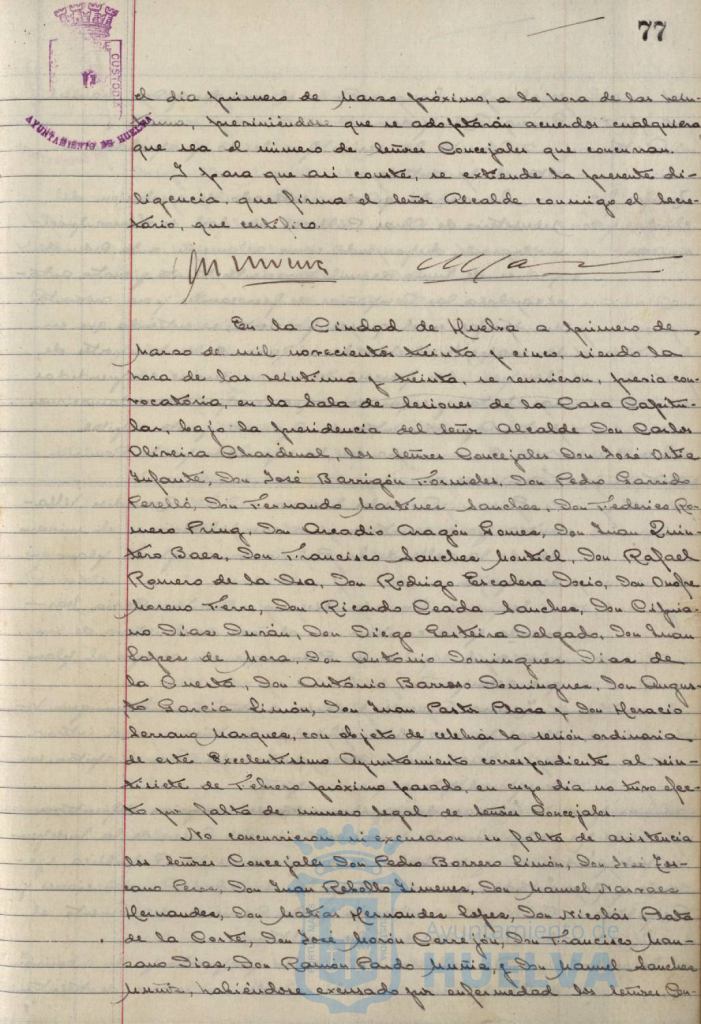 77
CUSTODIA
AYUNTAMIENTO DE HUELVA
el día primero de Marzo próximo, a la hora de las vein-
tiuna, previniéndose que se adoptarán acuerdos cualquiera
que sea el número de señores Concejales que concurran.
Y para que así conste, se extiende la presente di-
ligencia, que firma el señor Alcalde conmigo el Secre-
tario, que certifico.
En la Ciudad de Huelva a primero de
Marzo de mil novecientos treinta y cinco, siendo la
hora de las veintiuna y treinta, se reunieron, previa con-
vocatoria, en la Sala de Sesiones de la Casa Capitu-
lar, bajo la presidencia del señor Alcalde Don Carlos
Oliveira Chardenal, los señores Concejales Don José Ostia
Infante, Don José Barrigón Fornieles, Don Pedro Garrido
Perelló, Don Fernando Martinez Sanchez, Don Federico Ro-
mero Pring, Don Arcadio Aragón Gomez, Don Juan Quin-
tero Baez, Don Francisco Sanchez Montiel, Don Rafael
Romero de la Osa, Don Rodrigo Escalera Docio, Don Onofre
Moreno Ferre, Don Ricardo Ceada Sanchez, Don Cipria-
no Dias Durán, Don Diego Delgado, Don Juan
Lopez de Mora, Don António Dominguez Dias de
la Cuesta, Don António Barroso Dominguez, Don Augus-
to García Limón, Don Juan Pasta Plaza y Don Horacio
Serrano Marquez, con objeto de celebrar la sesión ordinaria
de este Excelentísimo Ayuntamiento correspondiente al vein-
tisiete de Febrero próximo pasado, en cuyo día no tuvo efec-
to por falta de número legal de señores Concejales.
No concurrieron ni excusaron su falta de asistencia
los señores Concejales Don Pedro Borrero Limón, Don José Tos-
cano Perez, Don Juan Rebollo Jimenez, Don Manuel Narvaez
Hernandez, Don Matías Hernandez Lopez, Don Nicolás Plata
de la Corte, Don José Morón Cerrejón, Don Francisco Man-
zano Dias, Don Ramón Pardo Muñiz, y Don Manuel Sanchez
Muñiz, habiéndose excusado por enfermedad los señores Con-
Ayuntamiento de
HUELVA